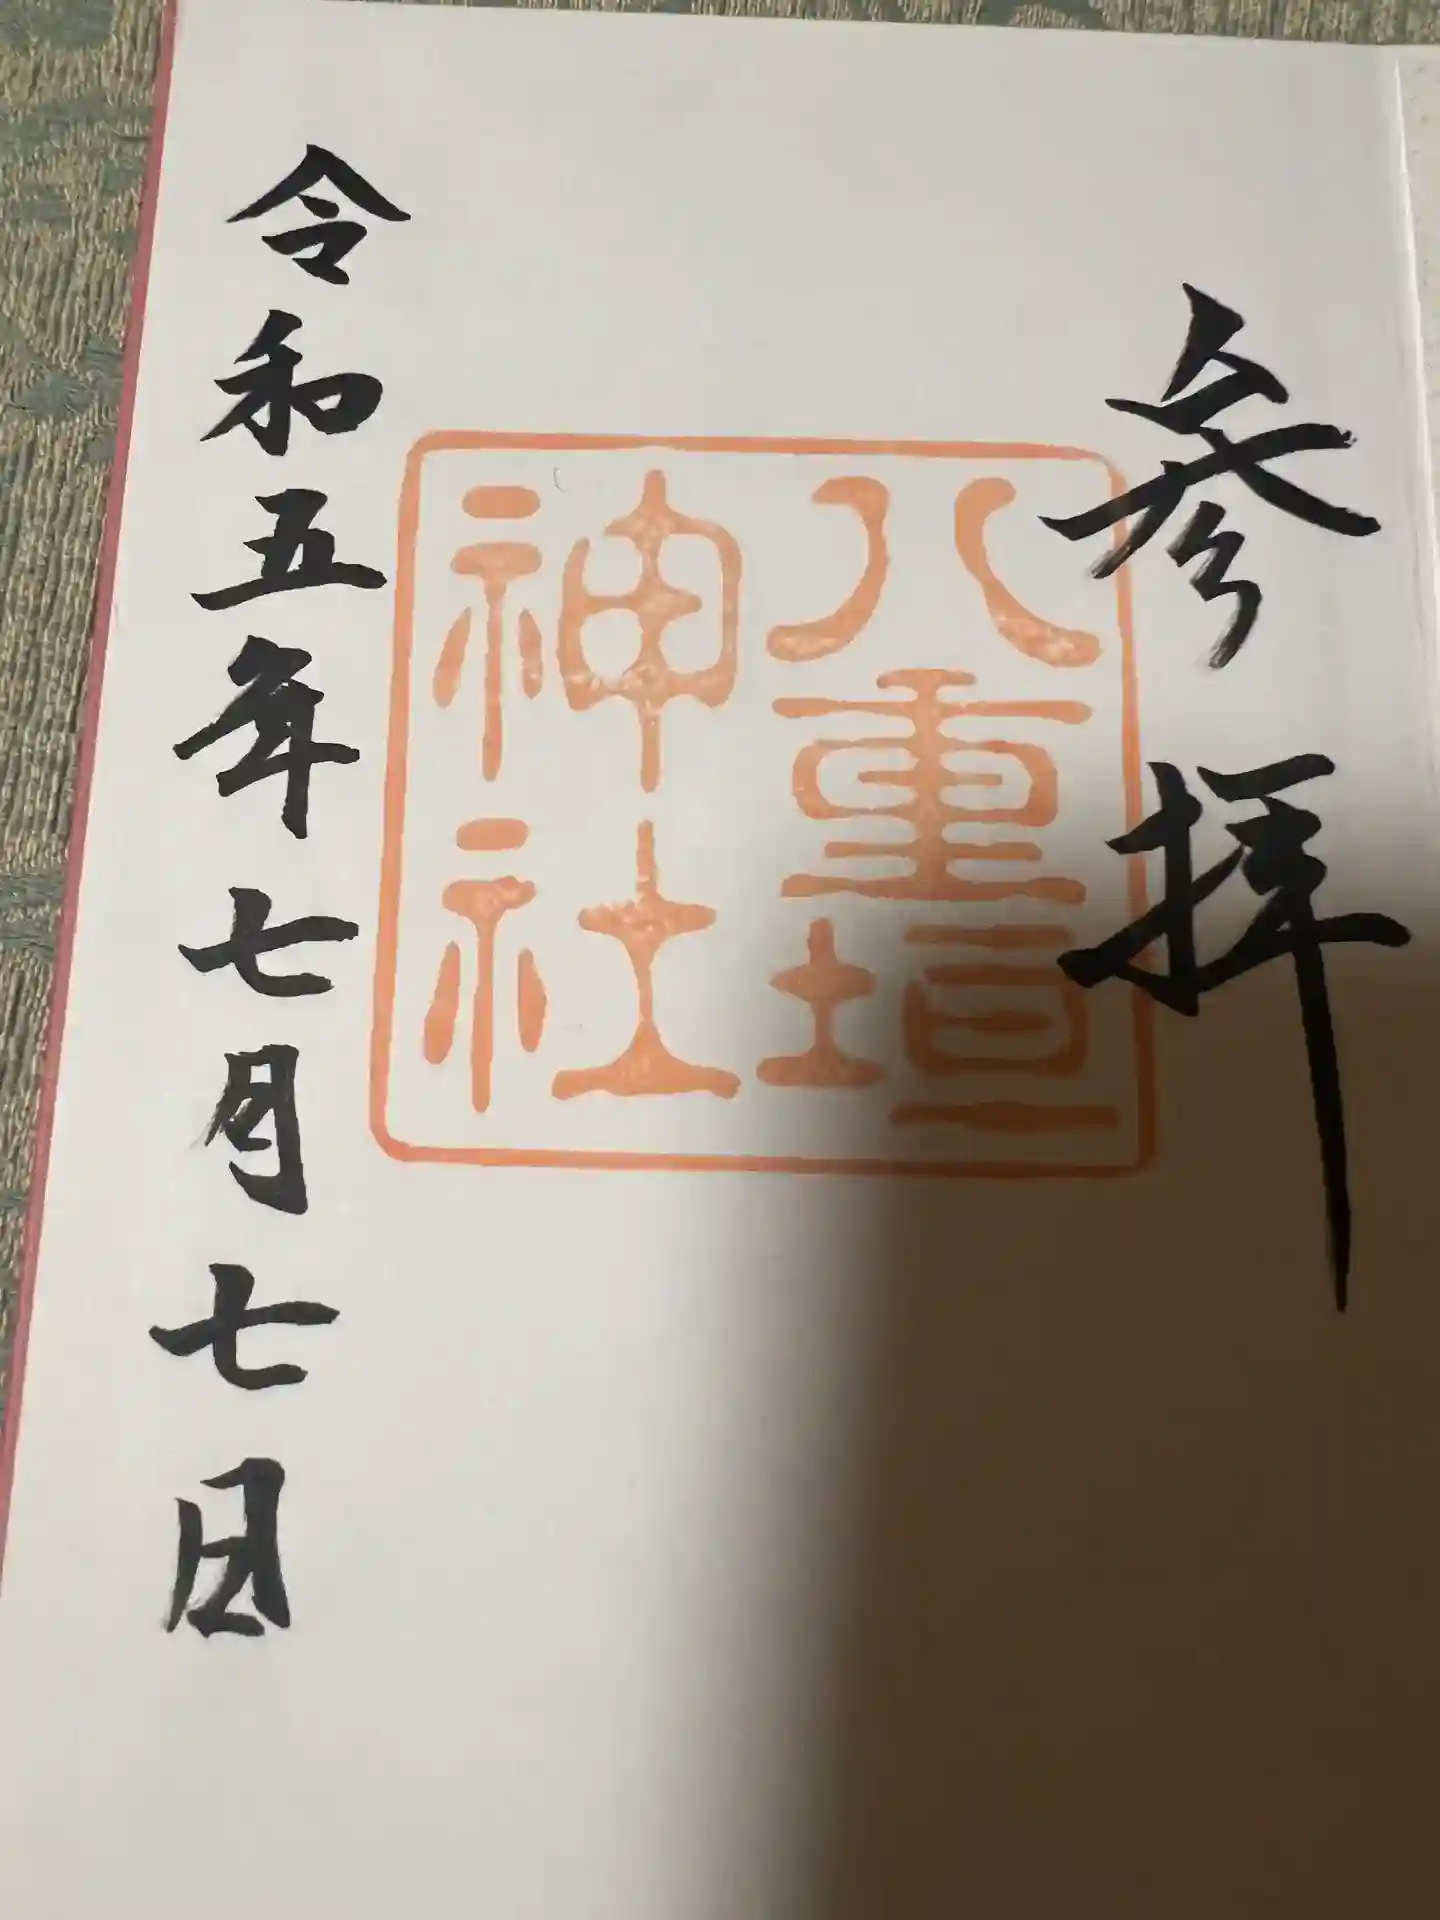 参拝
八重垣
神社
令和五年七月七日